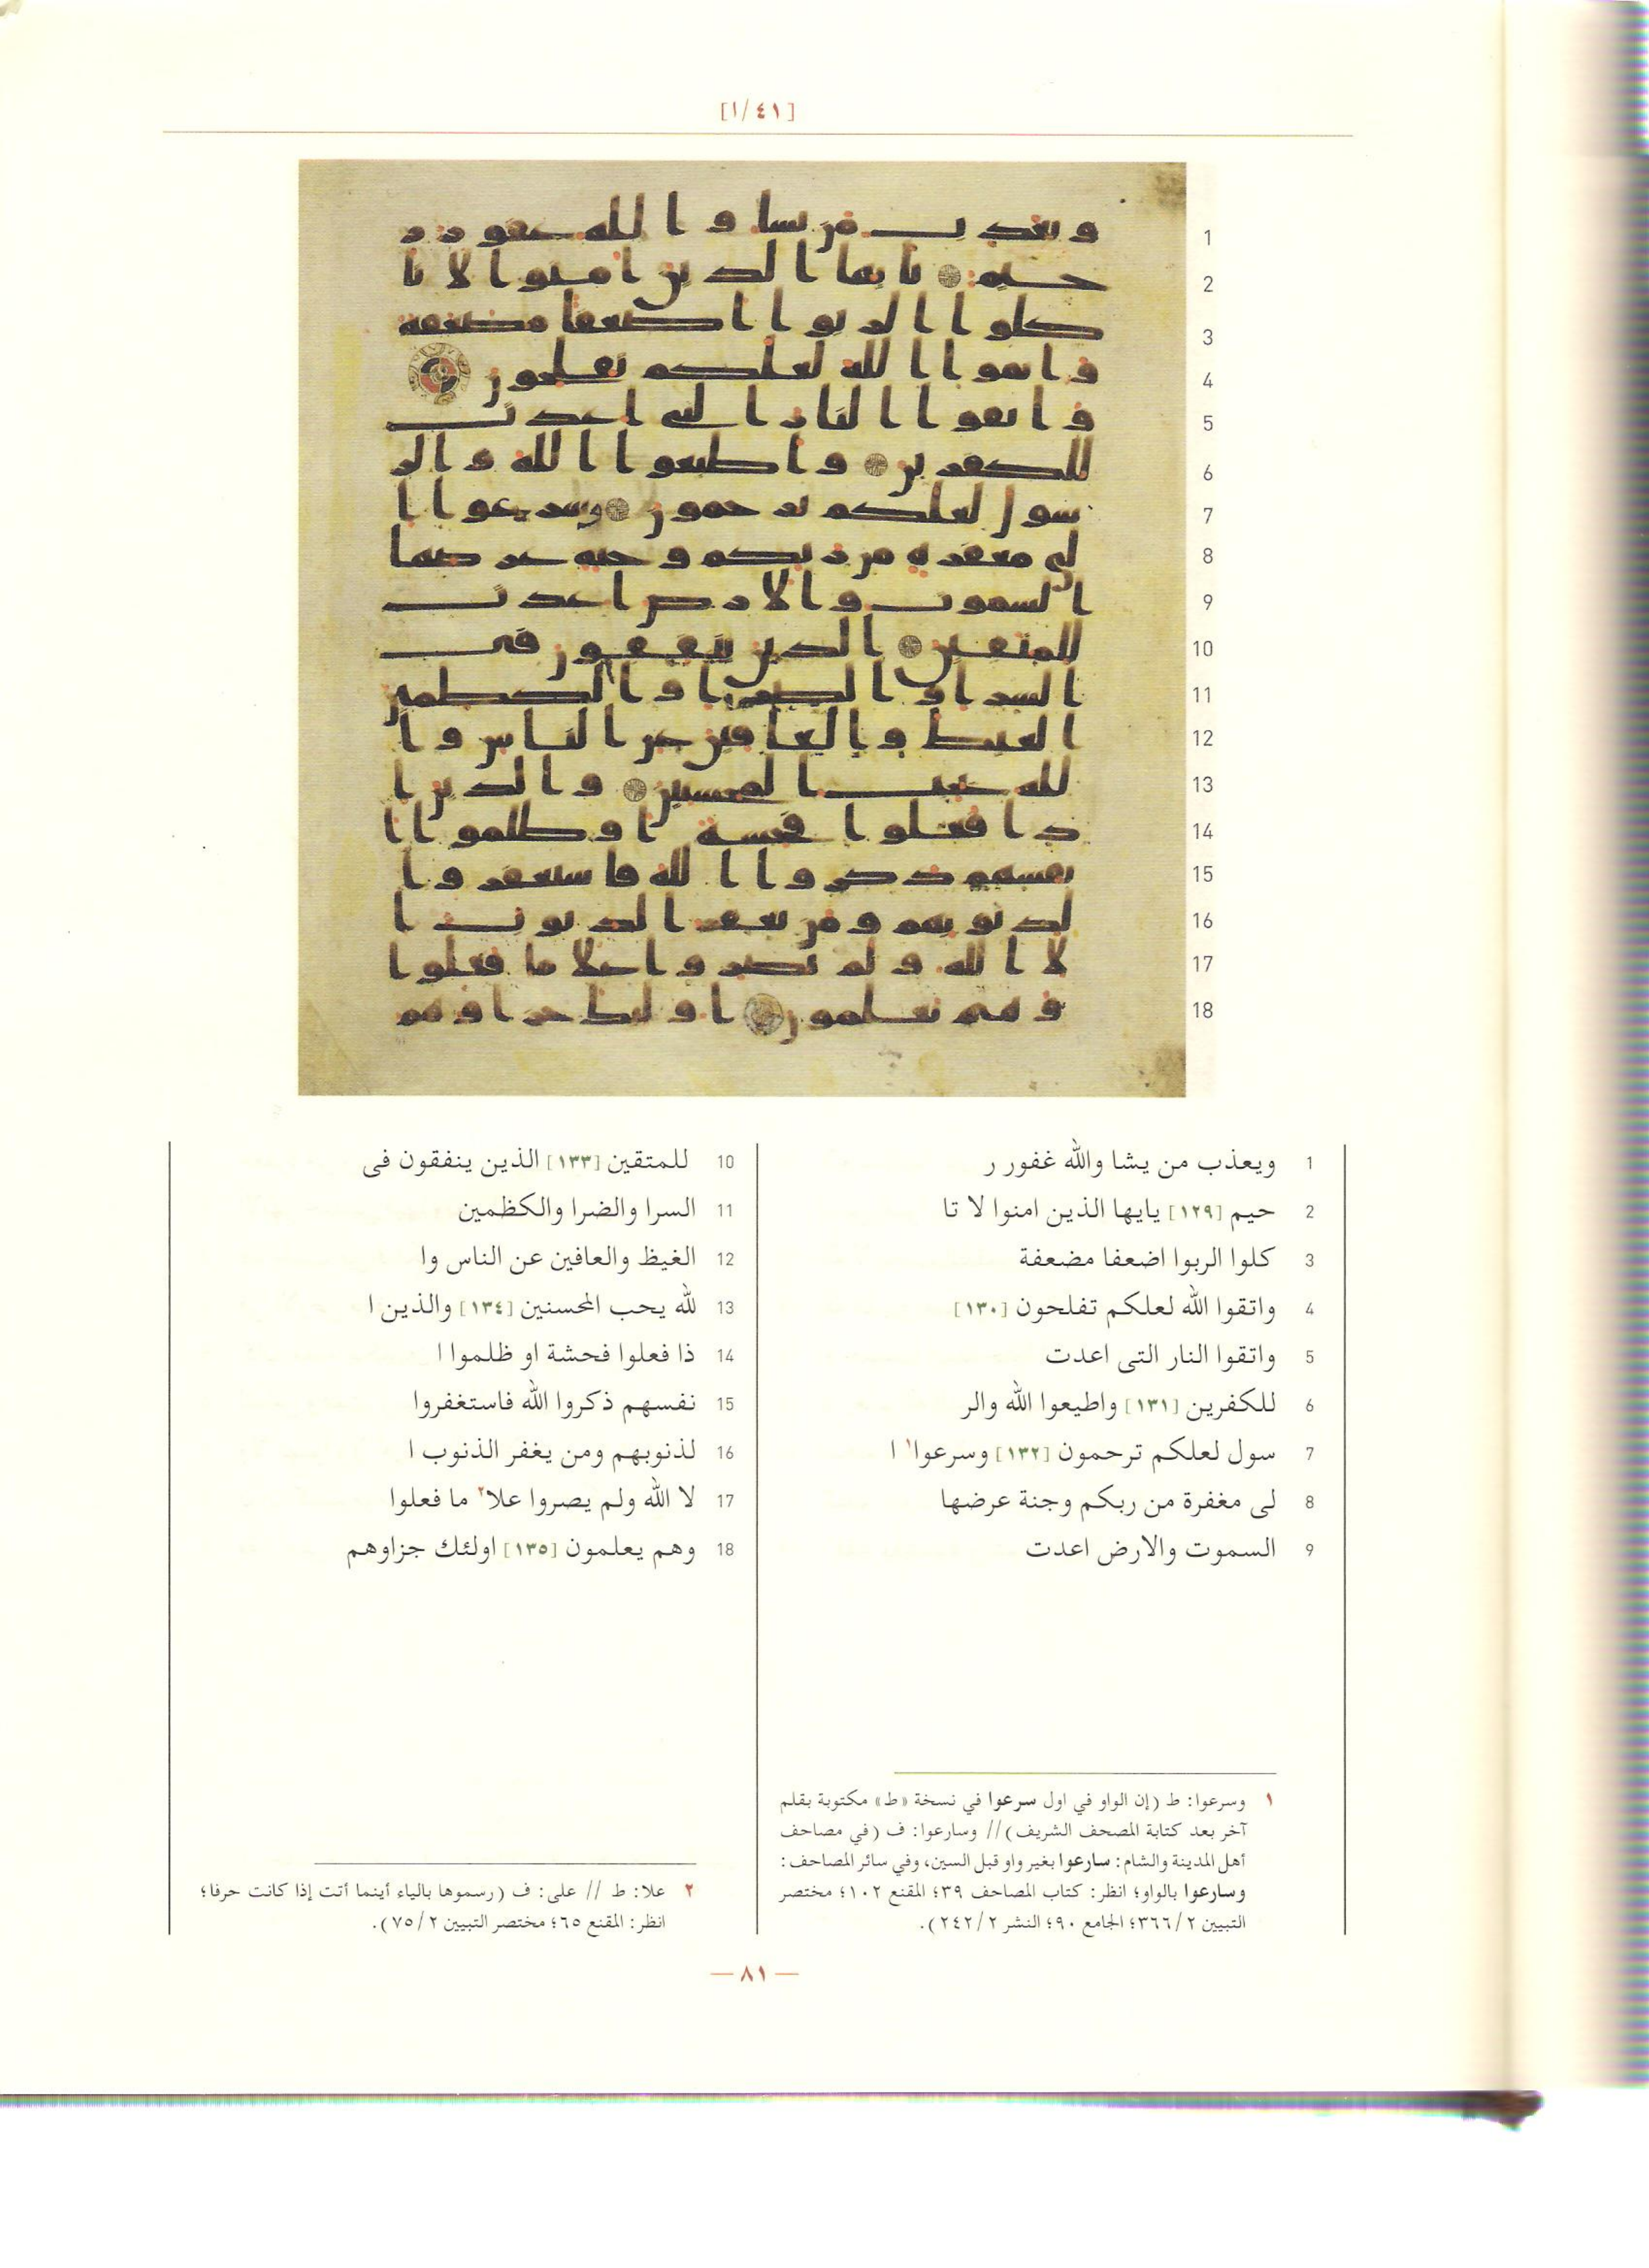 [٤١/١]
1 ويعذب من يشا والله غفور ر
2 حيم [١٢٩] يايها الذين امنوا لا تا
3 كلوا الربوا اضعفا مضعفة
4 واتقوا الله لعلكم تفلحون [١٣٠]
5 واتقوا النار التى اعدت
6 للكفرين [١٣١] واطيعوا الله والر
7 سول لعلكم ترحمون [١٣٢] وسرعوا١ ا
8 لى مغفرة من ربكم وجنة عرضها
9 السموت والارض اعدت
10 للمتقين [١٣٣] الذين ينفقون فى
11 السرا والضرا والكظمين
12 الغيظ والعافين عن الناس وا
13 لله يحب المحسنين [١٣٤] والذين ا
14 ذا فعلوا فحشة او ظلموا ا
15 نفسهم ذكروا الله فاستغفروا
16 لذنوبهم ومن يغفر الذنوب ا
17 لا الله ولم يصروا علا٢ ما فعلوا
18 وهم يعلمون [١٣٥] اولئك جزاوهم
١ وسرعوا: ط (إن الواو في اول سرعوا في نسخة «ط» مكتوبة بقلم
آخر بعد كتابة المصحف الشريف) // وسارعوا: ف (في مصاحف
أهل المدينة والشام: سارعوا بغير واو قبل السين، وفي سائر المصاحف:
وسارعوا بالواو؛ انظر: كتاب المصاحف ٣٩؛ المقنع ١٠٢؛ مختصر
التبيين ٣٦٦/٢؛ الجامع ٩٠؛ النشر ٢٤٢/٢).
٢ علا: ط // على: ف (رسموها بالياء أينما أتت إذا كانت حرفا؛
انظر: المقنع ٦٥؛ مختصر التبيين ٧٥/٢).
— ٨١ —